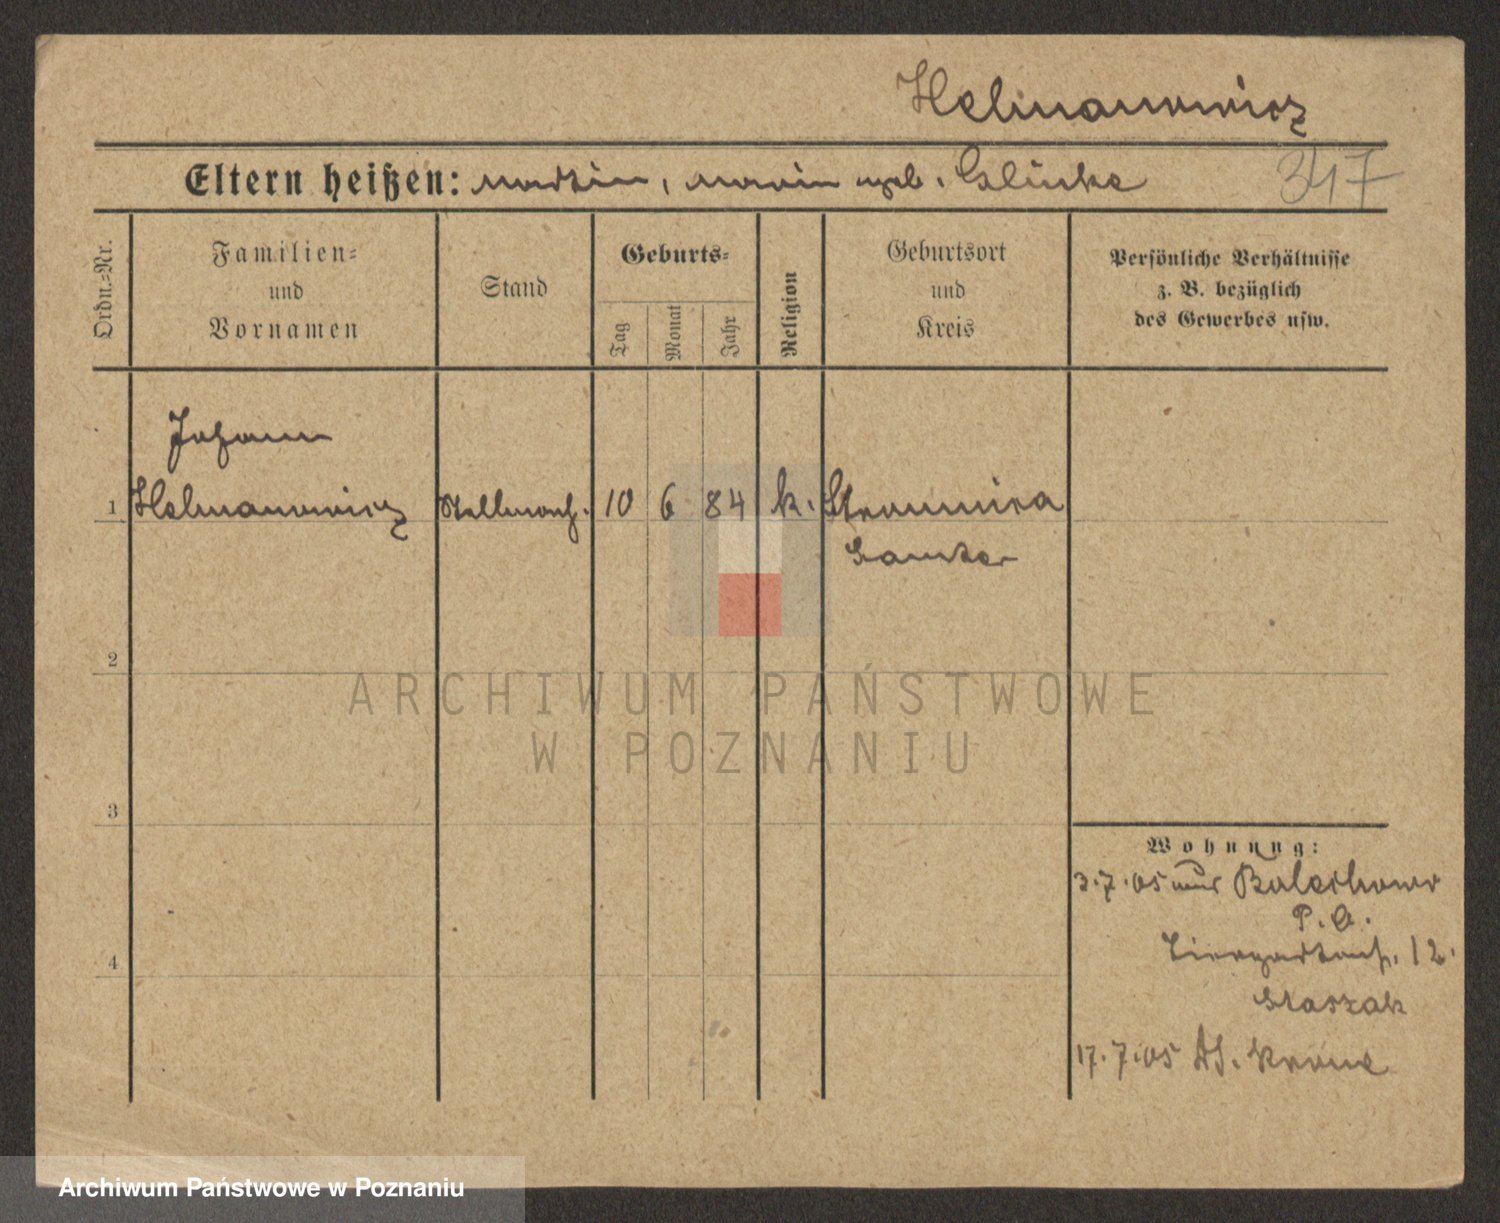 Helmanowicz
Eltern heißen: Martin, Maria geb. Glinka
347
Ordn.-Nr.
Familien-
und
Vornamen
Stand
Geburts-
Tag
Monat
Jahr
Religion
Geburtsort
und
Kreis
Persönliche Verhältnisse
z. B. bezüglich
des Gewerbes usw.
Johann
1 Helmanowicz Stellmach. 10 6 84 k.
Samter
2
ARCHIWUM PAŃSTWOWE
W POZNANIU
3
Wohnung:
3.7.05 aus Bolechowo
P. O.
Tiergartenstr. 12.
Staszak
4
17.7.05 Dt. Krone
Archiwum Państwowe w Poznaniu